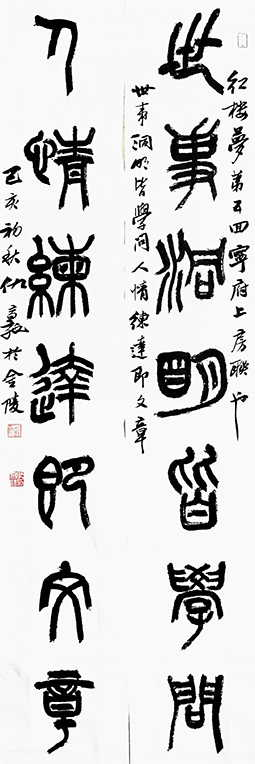 紅楼夢第五回寧府上房聯也
世事洞明皆學問
世事洞明皆學問人情練達即文章
人情練達即文章
己亥初秋於金陵